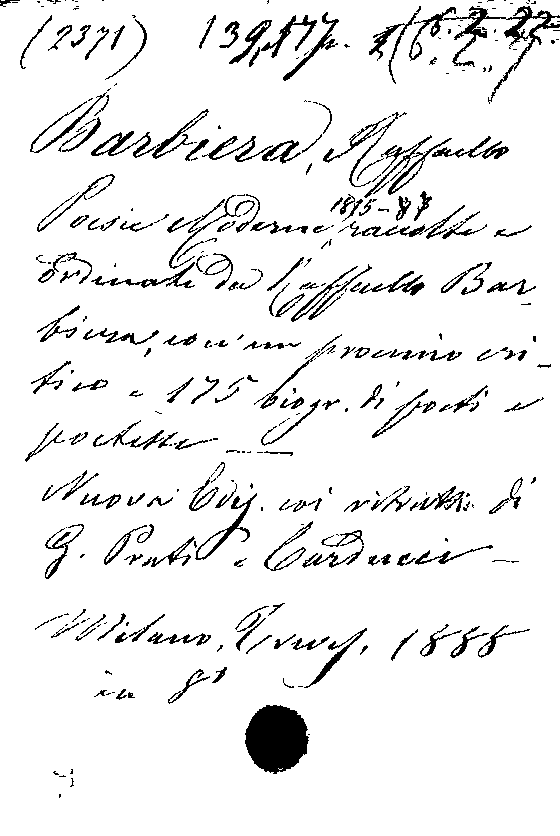 (2371) 139,177
Barbiera, Raffaello
1815-87
Poesie Moderne, raccolte e
ordinate da Raffaello Bar-
biera, con un proemio cri-
tico e 175 biogr. di poeti e
poetesse —
Nuova Ediz. coi ritratti di
G. Prati e Carducci —
Milano, Treves, 1888
in 8º